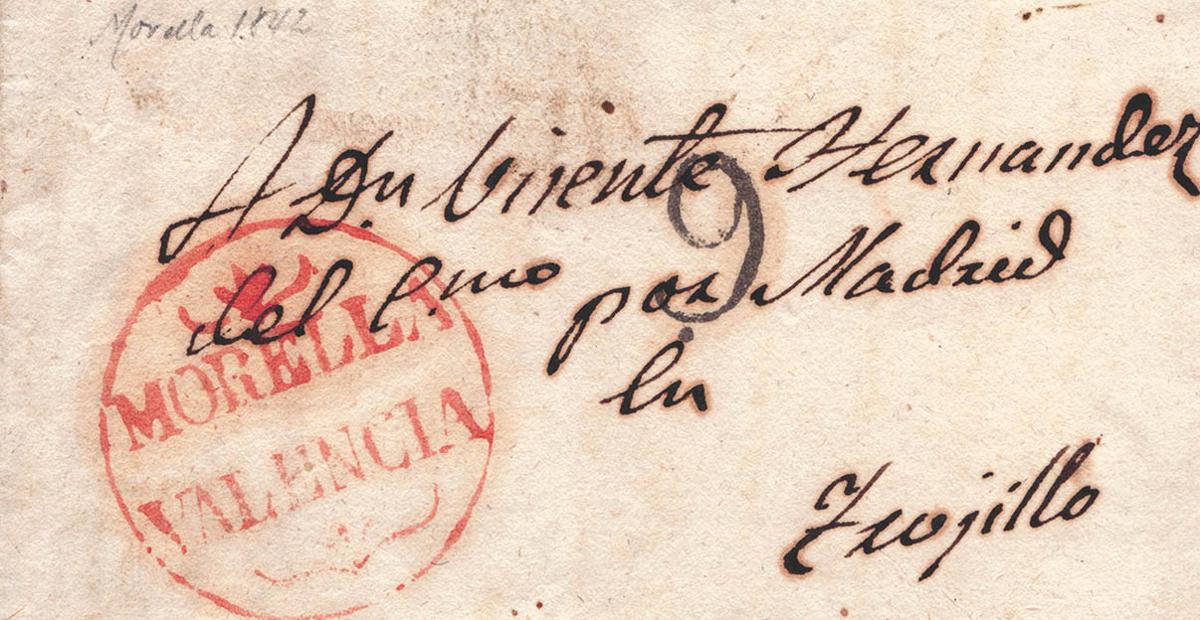 Morella 1842
A Dn Vicente Hernandez
del Cmo por Madrid
9
En
Trojillo
MORELLA
VALENCIA